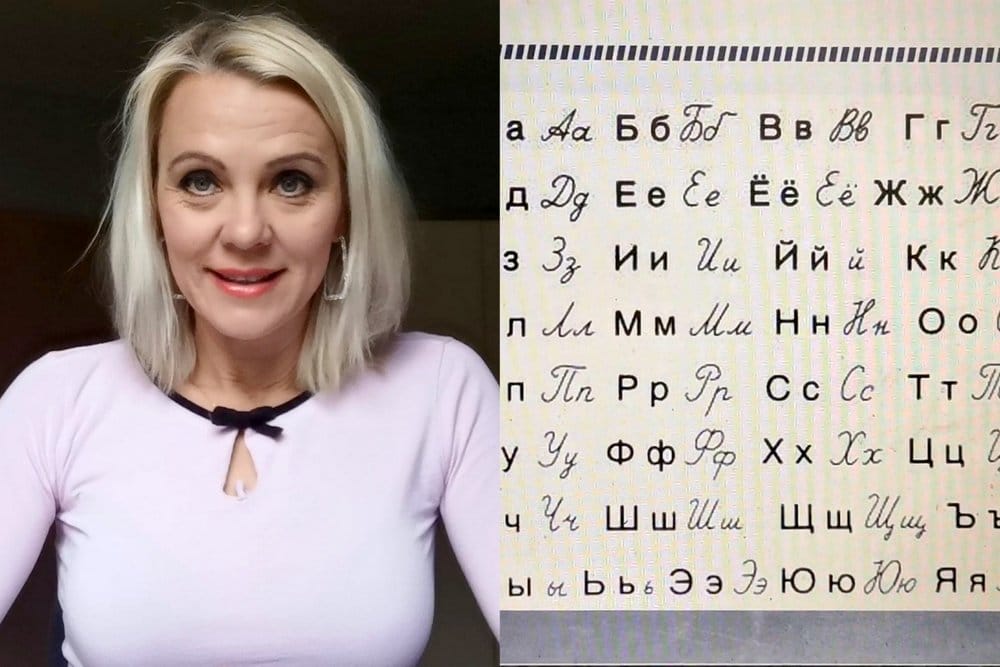 а Аа Бб Бб Вв Вв Гг Гг
д Дд Ее Ее Ёё Ёё Жж Ж
з Зз Ии Ии Йй й Кк К
л Лл Мм Мм Нн Нн Оо
п Пп Рр Рр Сс Сс Тт Т
у Уу Фф Фф Хх Хх Цц
ч Чч Шш Шш Щщ Щщ Ъъ
ы ы Ьь ь Ээ Ээ Юю Юю Яя